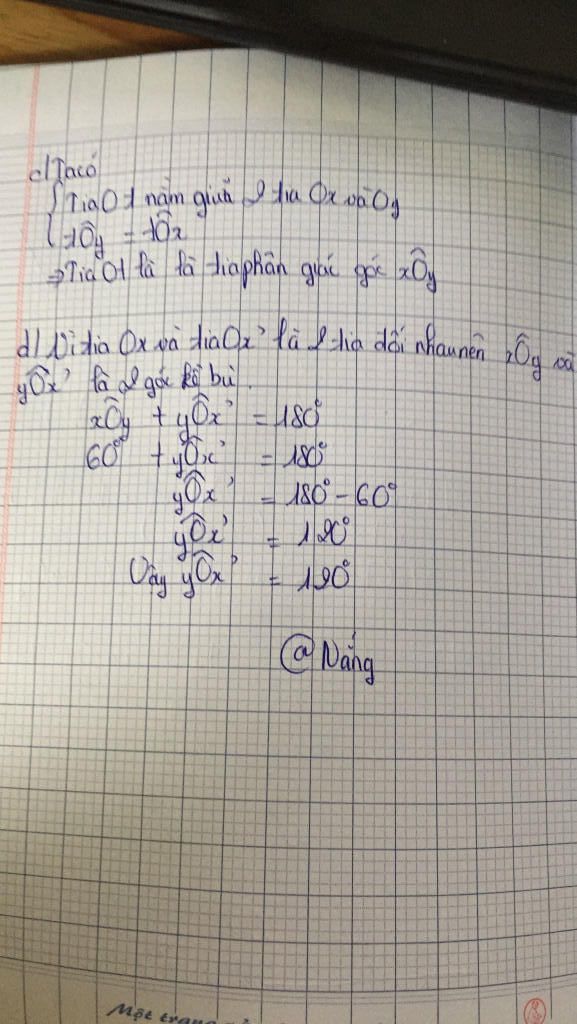 c/ Ta có
{ Tia Ot nằm giữa 2 tia Ox và Oy
tÔy = tÔx
⇒ Tia Ot là là tia phân giác góc xÔy
d/ Vì tia Ox và tia Ox' là 2 tia đối nhau nên xÔy và
yÔx' là 2 góc kề bù.
xÔy + yÔx' = 180°
60° + yÔx' = 180°
yÔx' = 180° - 60°
yÔx' = 120°
Vậy yÔx' = 120°
@ Nắng
Một trang